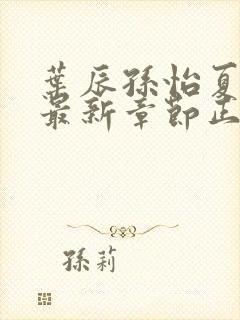 葉辰孫怡夏
最新章節正
孫莉